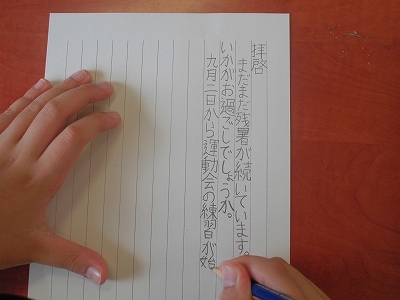 拝啓
まだまだ残暑が続いています。
いかがお過ごしでしょうか。
九月二日から運動会の練習が始